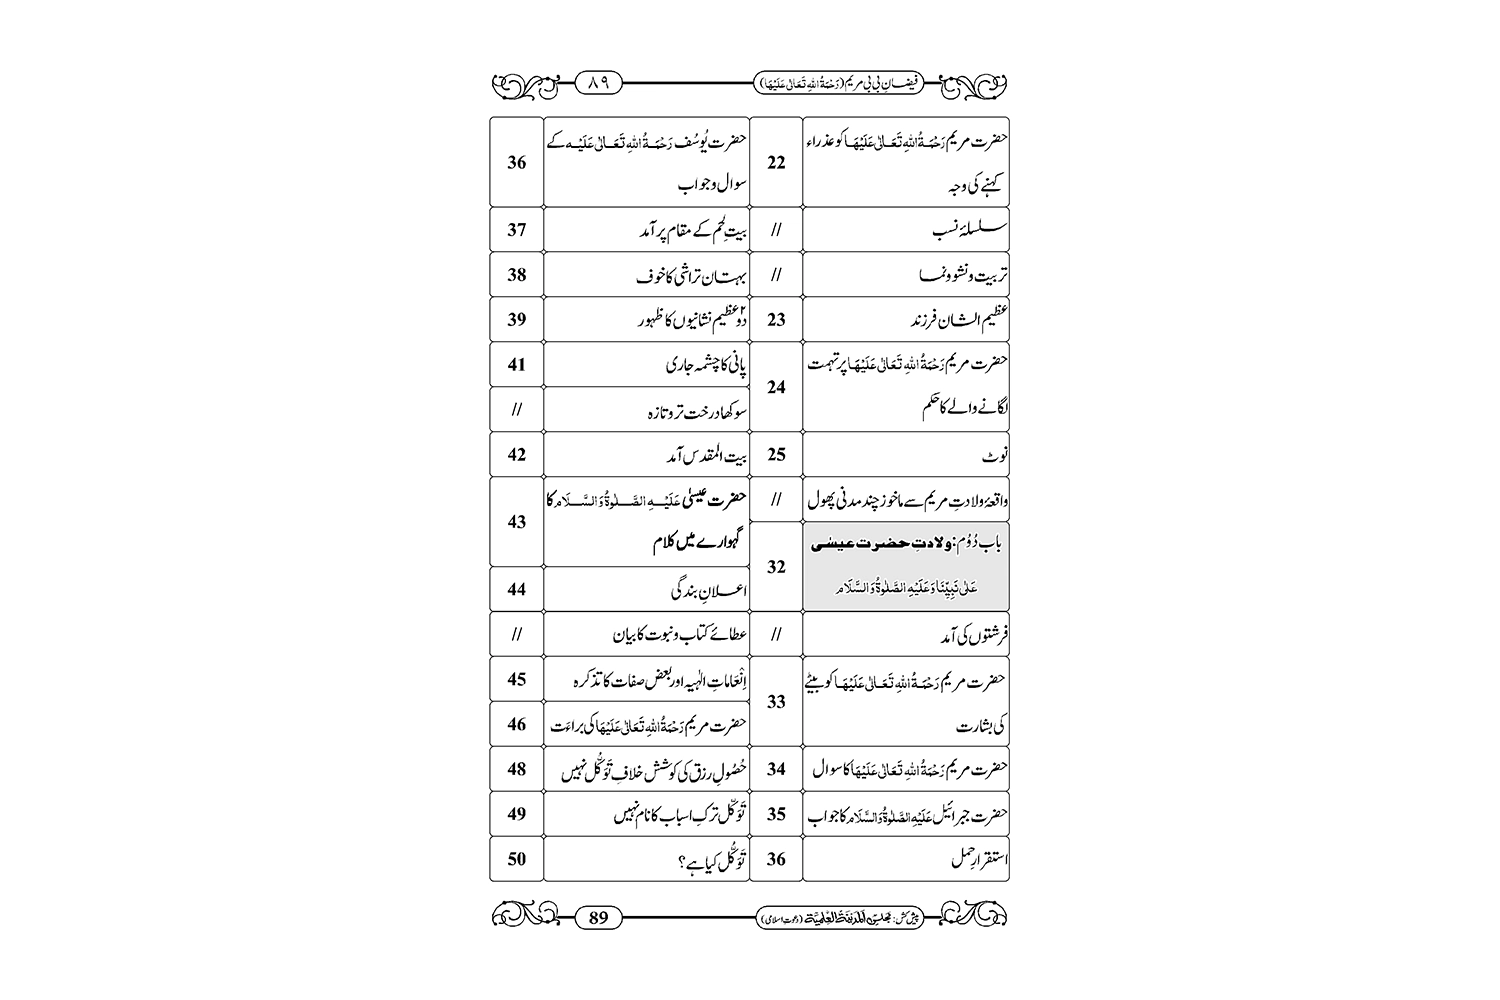 فیضانِ بی بی مریم (رَحْمَۃُ اللہِ تَعَالٰی عَلَیْہَا)
۸۹
حضرت مریم رَحْمَۃُ اللہِ تَعَالٰی عَلَیْہَا کو عذراء
کہنے کی وجہ
22
سلسلۂ نسب
//
تربیت و نشو و نما
//
عظیم الشان فرزند
23
حضرت مریم رَحْمَۃُ اللہِ تَعَالٰی عَلَیْہَا پر تہمت
لگانے والے کا حکم
24
نوٹ
25
واقعۂ ولادتِ مریم سے ماخوز چند مدنی پھول
//
باب دُوُم: ولادتِ حضرت عیسٰی
عَلٰی نَبِیِّنَا وَعَلَیْہِ الصَّلٰوۃُ وَالسَّلَام
32
فرشتوں کی آمد
//
حضرت مریم رَحْمَۃُ اللہِ تَعَالٰی عَلَیْہَا کو بیٹے
کی بشارت
33
حضرت مریم رَحْمَۃُ اللہِ تَعَالٰی عَلَیْہَا کا سوال
34
حضرت جبرائیل عَلَیْہِ الصَّلٰوۃُ وَالسَّلَام کا جواب
35
استقرارِ حمل
36
حضرت یُوسُف رَحْمَۃُ اللہِ تَعَالٰی عَلَیْہ کے
سوال و جواب
36
بیتِ لَحْم کے مقام پر آمد
37
بہتان تراشی کا خوف
38
دو۲ عظیم نشانیوں کا ظہور
39
پانی کا چشمہ جاری
41
سوکھا درخت تر و تازہ
//
بیت المقدس آمد
42
حضرت عیسیٰ عَلَیْہِ الصَّلٰوۃُ وَالسَّلَام کا
گہوارے میں کلام
43
اعلانِ بندگی
44
عطائے کتاب و نبوت کا بیان
//
اِنْعَاماتِ الٰہیہ اور بعض صفات کا تذکرہ
45
حضرت مریم رَحْمَۃُ اللہِ تَعَالٰی عَلَیْہَا کی براءَت
46
حُصُولِ رزق کی کوشش خلافِ تَوَکُّل نہیں
48
تَوَکُّل ترکِ اسباب کا نام نہیں
49
تَوَکُّل کیا ہے؟
50
پیش کش: مجلس المدینۃ العلمیۃ (دعوتِ اسلامی)
89